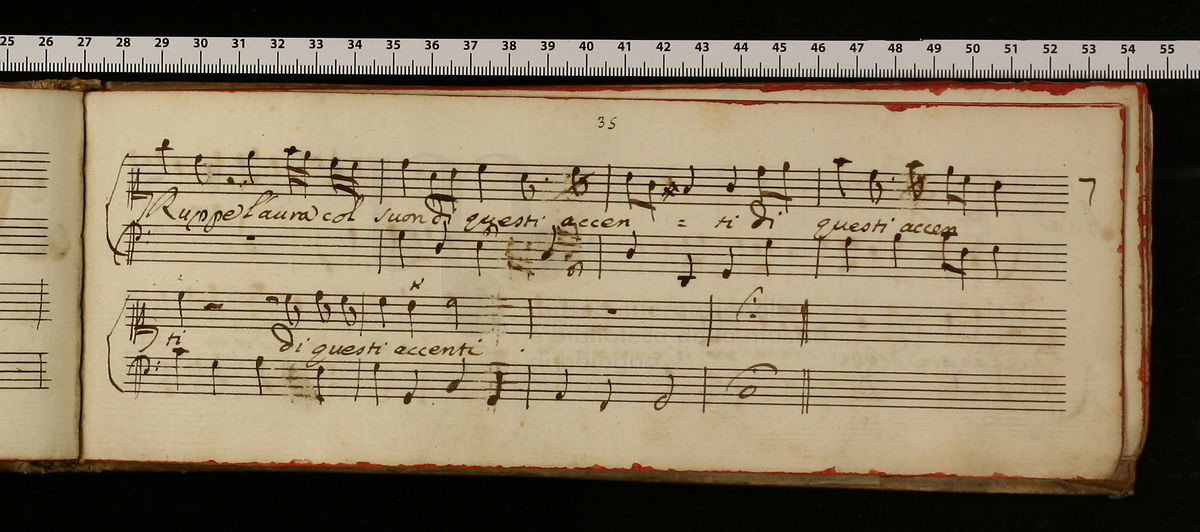 25 26 27 28 29 30 31 32 33 34 35 36 37 38 39 40 41 42 43 44 45 46 47 48 49 50 51 52 53 54 55
35
Ruppe l'aura col suon di questi accen = ti di questi accen
ti di questi accenti .